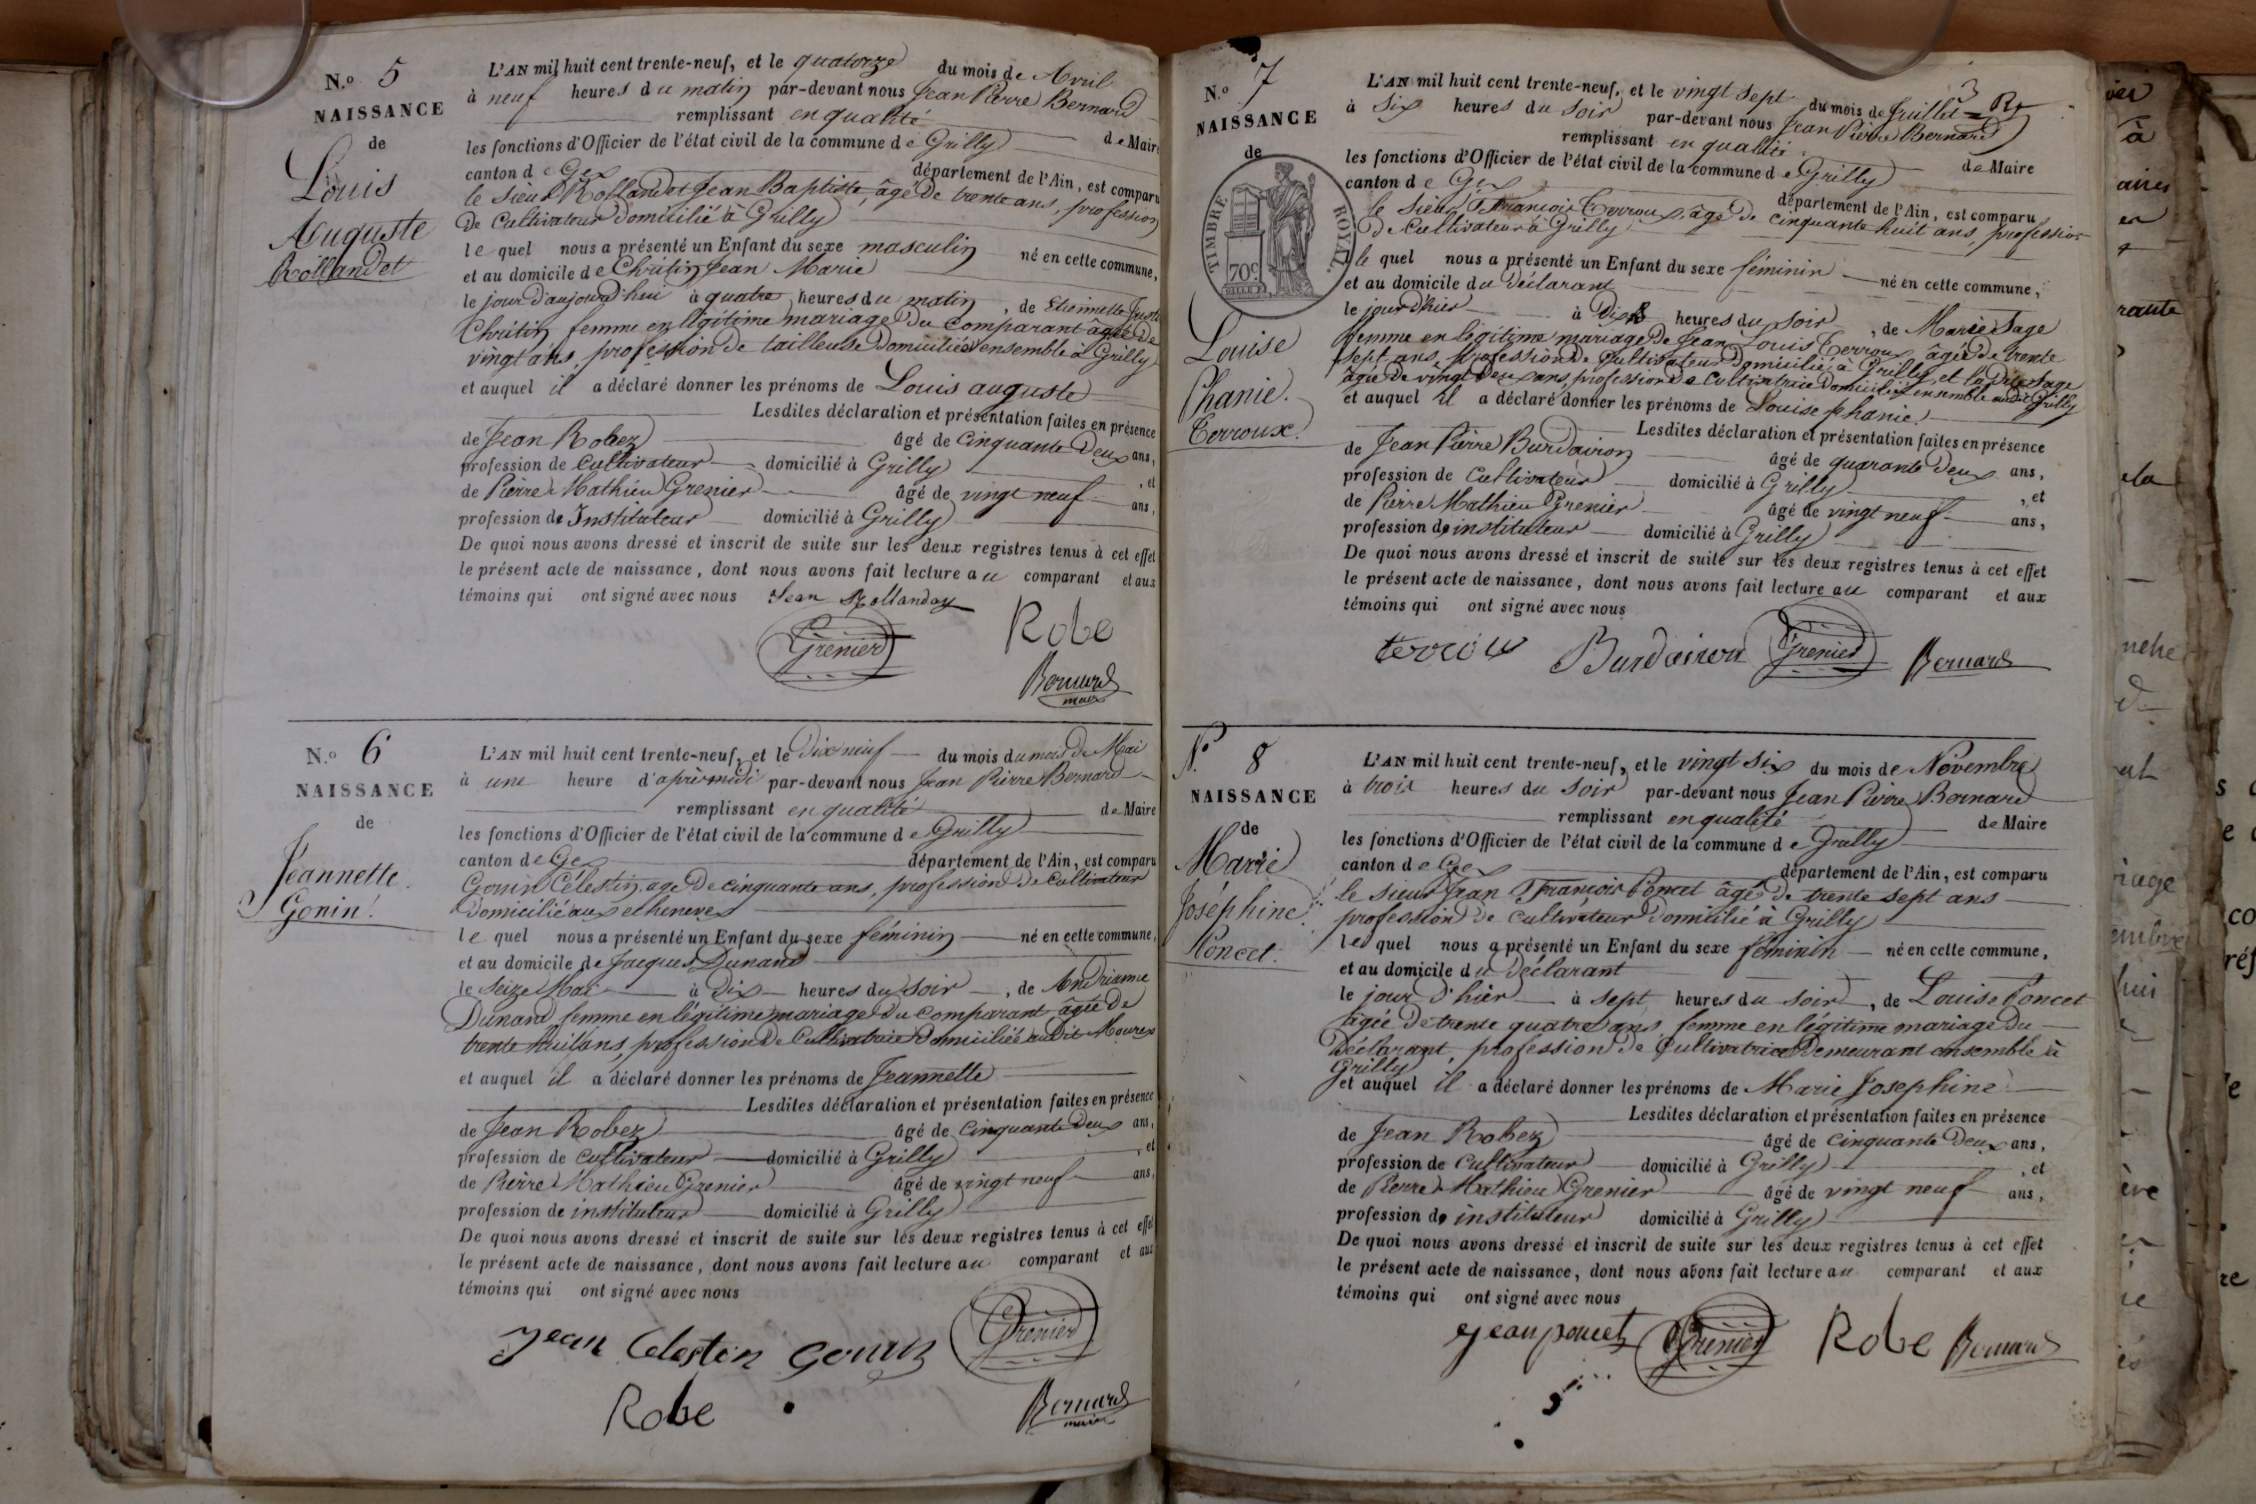 N.o 5
NAISSANCE
de
Louis
Auguste
Rollandet
L'AN mil huit cent trente-neuf, et le quatorze du mois de Avril
à neuf heures du matin par-devant nous Jean Pierre Bernard
remplissant en qualité de Maire
les fonctions d'Officier de l'état civil de la commune de Grilly
canton de Gex département de l'Ain, est comparu
le sieur Rollandet Jean Baptiste, âgé de trente ans, profession
de cultivateur domicilié à Grilly
lequel nous a présenté un Enfant du sexe masculin né en cette commune,
et au domicile de Chritin Jean Marie
le jour d'aujourd'hui à quatre heures du matin, de Etiennette
Chritin femme en légitime mariage du comparant âgée de
vingt ans, profession de tailleuse domiciliés ensemble à Grilly
et auquel il a déclaré donner les prénoms de Louis auguste
Lesdites déclaration et présentation faites en présence
de Jean Robez âgé de cinquante deux ans,
profession de cultivateur domicilié à Grilly, et
de Pierre Mathieu Grenier âgé de vingt neuf ans,
profession de Instituteur domicilié à Grilly
De quoi nous avons dressé et inscrit de suite sur les deux registres tenus à cet effet
le présent acte de naissance, dont nous avons fait lecture au comparant et aux
témoins qui ont signé avec nous Jean
Grenier Robe
Bernard
maire
N.o 6
NAISSANCE
de
Jeannette
Gonin
L'AN mil huit cent trente-neuf, et le Dix neuf du mois du mois de Mai
à une heure d'après midi par-devant nous Jean Pierre Bernard
remplissant en qualité de Maire
les fonctions d'Officier de l'état civil de la commune de Grilly
canton de Gex département de l'Ain, est comparu
Gonin Célestin, age de cinquante ans, profession de cultivateur
domicilié
lequel nous a présenté un Enfant du sexe féminin né en cette commune,
et au domicile de Jacques Dunand
le seize Mai à dix heures du soir, de Andrianne
Dunand femme en légitime mariage du comparant âgée de
trente huit ans, profession de Cultivatrice domiciliée audit Mourex
et auquel il a déclaré donner les prénoms de Jeannette
Lesdites déclaration et présentation faites en présence
de Jean Robez âgé de cinquante deux ans,
profession de cultivateur domicilié à Grilly, et
de Pierre Mathieu Grenier âgé de vingt neuf ans,
profession de instituteur domicilié à Grilly
De quoi nous avons dressé et inscrit de suite sur les deux registres tenus à cet effet
le présent acte de naissance, dont nous avons fait lecture au comparant et aux
témoins qui ont signé avec nous
jean Celestin gonin Grenier
Robe Bernard
maire
3
N.o 7
NAISSANCE
de
TIMBRE ROYAL.
70c
Louise
Phanie.
Terroux.
L'AN mil huit cent trente-neuf, et le vingt sept du mois de Juillet
à six heures du soir par-devant nous Jean Pierre Bernard
remplissant en qualité de Maire
les fonctions d'Officier de l'état civil de la commune de Grilly
canton de Gex département de l'Ain, est comparu
le sieur François Terroux, âgé de cinquante huit ans, profession
de cultivateur à Grilly
le quel nous a présenté un Enfant du sexe féminin né en cette commune,
et au domicile du déclarant
le jour d'hier à Dix heures du soir, de Marie Sage
femme en légitime mariage de Jean Louis Terroux âgé de trente
sept ans, profession de cultivateur domicilié à Grilly et la dite Sage
âgée de vingt deux ans, profession de cultivatrice domiciliés ensemble audit Grilly
et auquel il a déclaré donner les prénoms de Louise phanie
Lesdites déclaration et présentation faites en présence
de Jean Pierre Burdairon âgé de quarante deux ans,
profession de cultivateur domicilié à Grilly, et
de Pierre Mathieu Grenier âgé de vingt neuf ans,
profession de instituteur domicilié à Grilly
De quoi nous avons dressé et inscrit de suite sur les deux registres tenus à cet effet
le présent acte de naissance, dont nous avons fait lecture au comparant et aux
témoins qui ont signé avec nous
Burdairon Grenier Bernard
N.o 8
NAISSANCE
de
Marie
Joséphine
Poncet.
L'AN mil huit cent trente-neuf, et le vingt six du mois de Novembre
à trois heures du soir par-devant nous Jean Pierre Bernard
remplissant en qualité de Maire
les fonctions d'Officier de l'état civil de la commune de Grilly
canton de Gex département de l'Ain, est comparu
le sieur Jean François Poncet âgé de trente sept ans
profession de cultivateur domicilié à Grilly
lequel nous a présenté un Enfant du sexe féminin né en cette commune,
et au domicile du déclarant
le jour d'hier à sept heures du soir, de Louise Poncet
âgée de trente quatre ans, femme en légitime mariage du
déclarant, profession de Cultivatrice demeurant ensemble à
Grilly
et auquel il a déclaré donner les prénoms de Marie Josephine
Lesdites déclaration et présentation faites en présence
de Jean Robez âgé de cinquante deux ans,
profession de cultivateur domicilié à Grilly, et
de Pierre Mathieu Grenier âgé de vingt neuf ans,
profession de instituteur domicilié à Grilly
De quoi nous avons dressé et inscrit de suite sur les deux registres tenus à cet effet
le présent acte de naissance, dont nous avons fait lecture au comparant et aux
témoins qui ont signé avec nous
jean poncet Grenier Robe Bernard